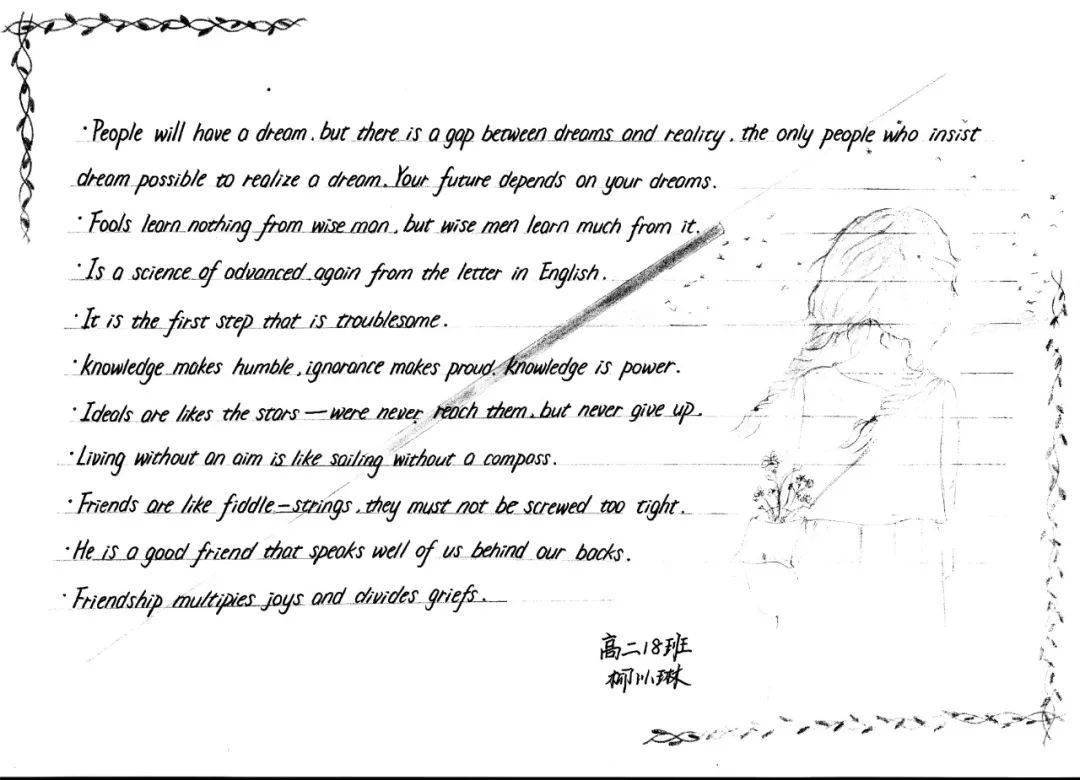 ·People will have a dream. but there is a gap between dreams and reality. the only people who insist
dream possible to realize a dream. Your future depends on your dreams.
·Fools learn nothing from wise man, but wise men learn much from it.
·Is a science of advanced again from the letter in English.
·It is the first step that is troublesome.
·knowledge makes humble, ignorance makes proud. knowledge is power.
·Ideals are likes the stars — were never reach them, but never give up.
·Living without an aim is like sailing without a compass.
·Friends are like fiddle-strings, they must not be screwed too tight.
·He is a good friend that speaks well of us behind our backs.
·Friendship multipies joys and divides griefs.
高二18班
柳小琳